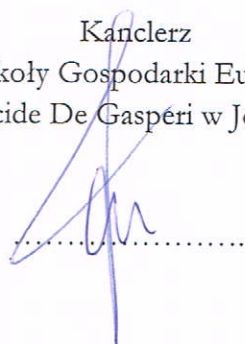 Kanclerz
koły Gospodarki Eu
cide De Gasperi w Jó
........................